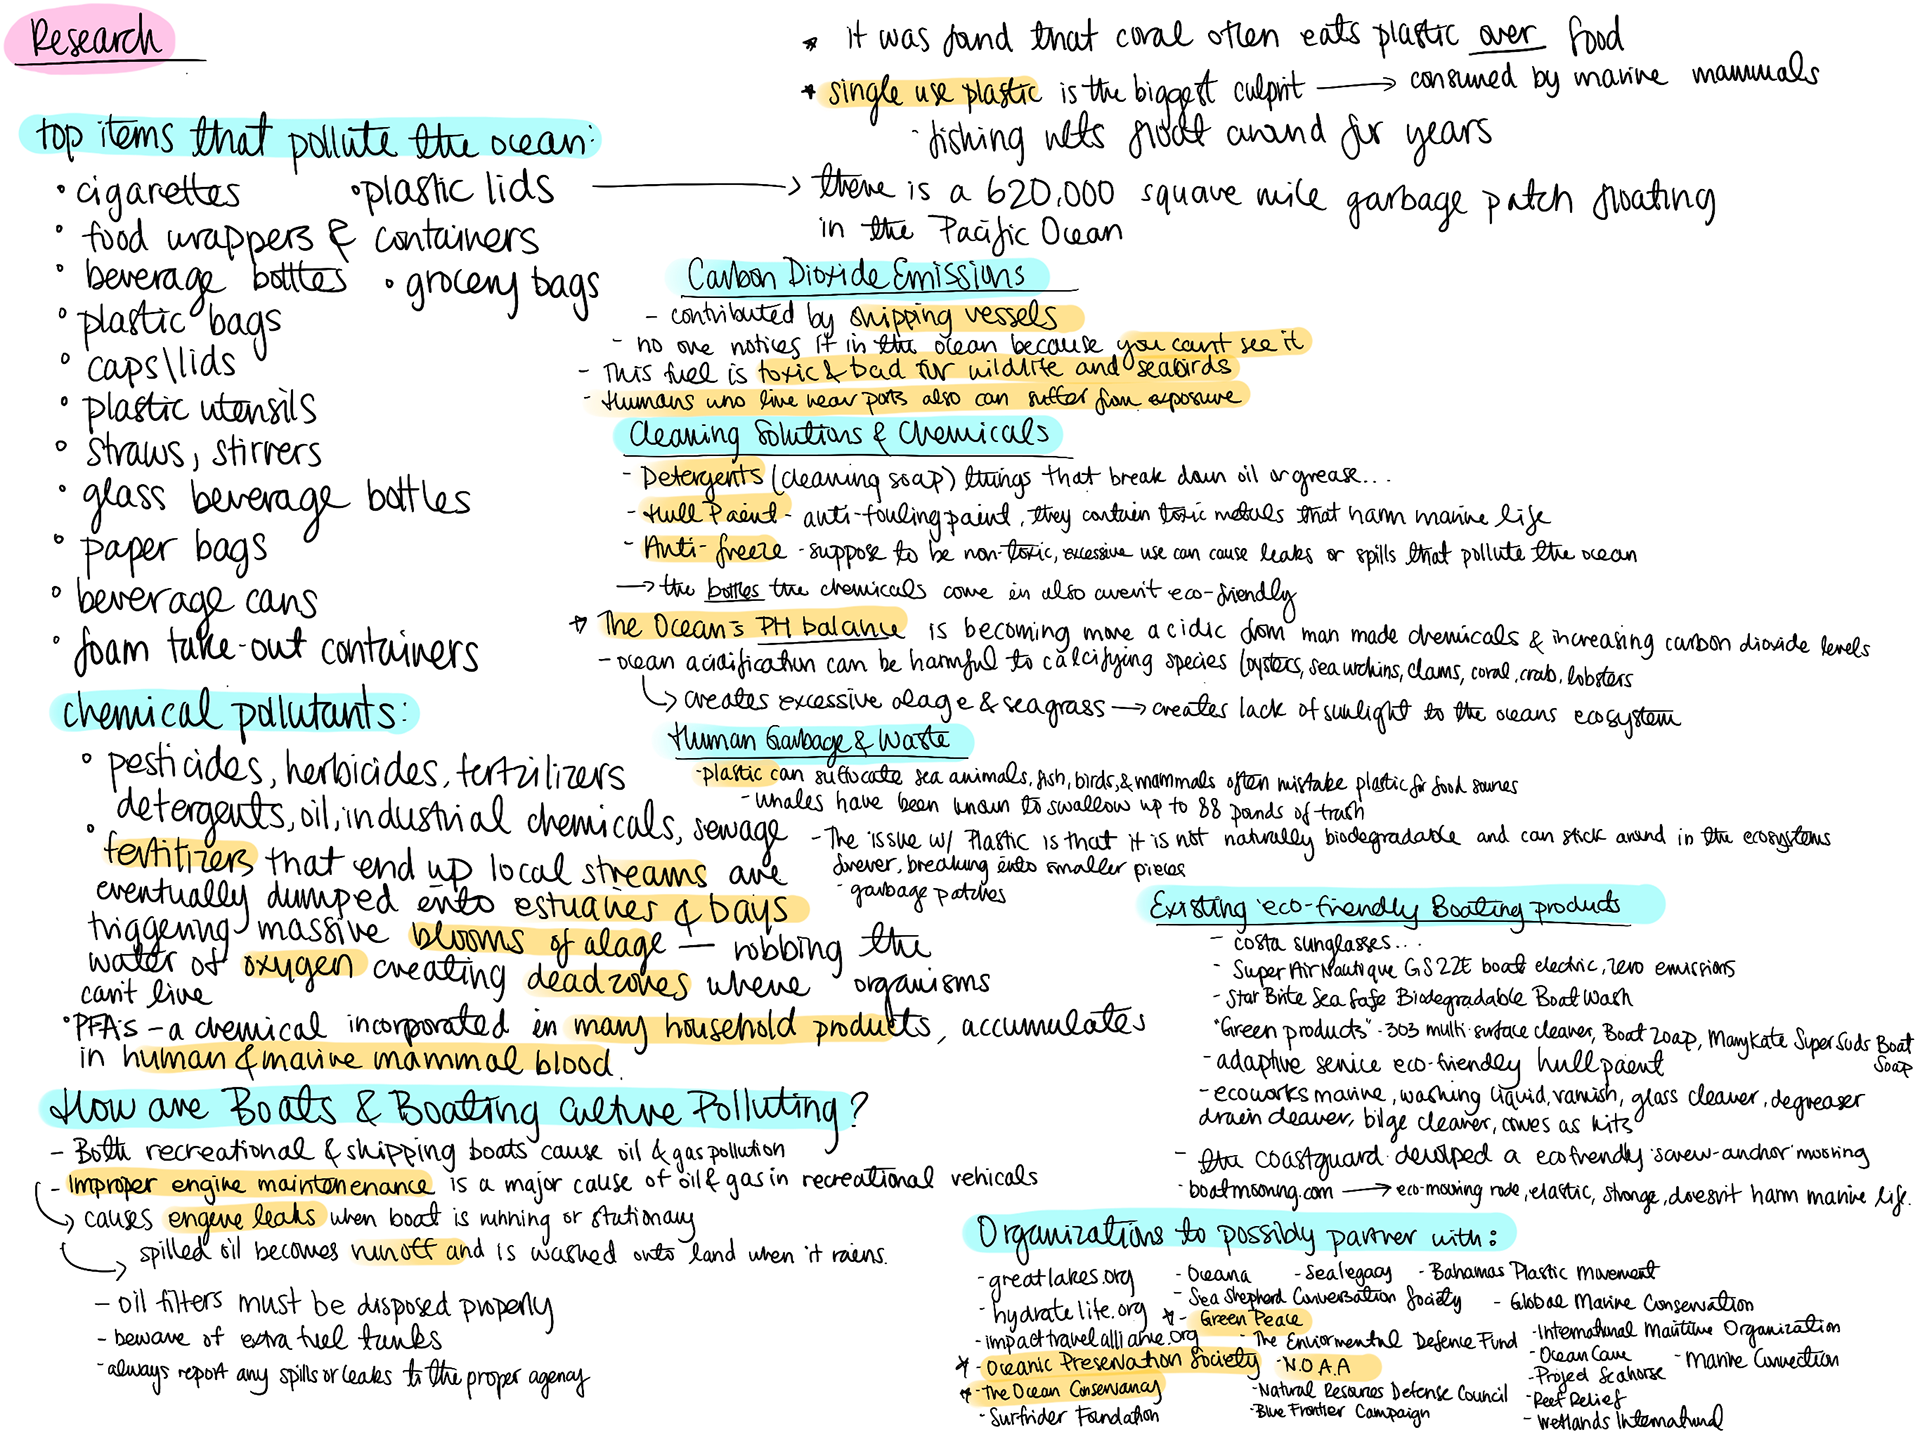 Research
top items that pollute the ocean:
• cigarettes
• plastic lids
• food wrappers & containers
• beverage bottles
• grocery bags
• plastic bags
• caps\lids
• plastic utensils
• straws, stirrers
• glass beverage bottles
• paper bags
• beverage cans
• foam take-out containers
chemical pollutants:
• pesticides, herbicides, fertzilizers
detergents, oil, industrial chemicals, sewage
• fertitizers that end up local streams are
eventually dumped into estuaries & bays
triggering massive blooms of alage — robbing the
water of oxygen creating deadzones where organisms
can't live
• PFA's - a chemical incorporated in many household products, accumulates
in human & marine mammal blood.
How are Boats & Boating culture Polluting?
- Both recreational & shipping boats cause oil & gas pollution
- Improper engine maintenenance is a major cause of oil & gas in recreational vehicals
→ causes engine leaks when boat is running or stationary
→ spilled oil becomes runoff and is washed onto land when it rains.
- oil filters must be disposed properly
- beware of extra fuel tanks
- always report any spills or leaks to the proper agency
* it was fond that coral often eats plastic over food
* single use plastic is the biggest culprit → consumed by marine mammals
- fishing nets float around for years
→ there is a 620,000 square mile garbage patch floating
in the Pacific Ocean
Carbon Dioxide Emissions
- contributed by shipping vessels
- no one notices it in the ocean because you can't see it
- This fuel is toxic & bad for wildlife and seabirds
- Humans who live near ports also can suffer from exposure
Cleaning Solutions & Chemicals
- Detergents (cleaning soap) things that break down oil or grease...
- Hull Paint - anti-fouling paint, they contain toxic metals that harm marine life
- Anti-freeze - suppose to be non-toxic, excessive use can cause leaks or spills that pollute the ocean
→ the bottles the chemicals come in also aren't eco-friendly
* The Ocean's PH balance is becoming more acidic from man made chemicals & increasing carbon dioxide levels
- ocean acidification can be harmful to calcifying species (oysters, sea urchins, clams, coral, crab, lobsters
→ creates excessive alage & seagrass → creates lack of sunlight to the oceans ecosystem
Human Garbage & Waste
- plastic can suffocate sea animals, fish, birds, & mammals often mistake plastic for food sources
- whales have been known to swallow up to 88 pounds of trash
- The issue w/ Plastic is that it is not naturally biodegradable and can stick around in the ecosystems
forever, breaking into smaller pieces
- garbage patches
Existing eco-friendly Boating products
- costa sunglasses...
- Super Air Nautique GS22E boat electric, zero emissions
- Star Brite Sea Safe Biodegradable Boat Wash
"Green products" - 303 multi-surface cleaner, Boat Zoap, MaryKate Super Suds Boat Soap
- adaptive service eco-friendly hull paint
- ecoworks marine, washing liquid, vanish, glass cleaner, degreaser
drain cleaver, bilge cleaner, comes as kits
- the coastguard develped a ecofrendly 'screw-anchor' mooring
- boatmooring.com → eco-mooring rode, elastic, stronge, doesn't harm marine life.
Organizations to possibly partner with:
- greatlakes.org
- hydratelife.org
- impacttravelalliance.org
* - Oceanic Preservation Society
* - The Ocean Conservancy
- Surfrider Foundation
- Oceana
- Sealegacy
- Bahamas Plastic Movement
- Sea Shepherd Conversation Society
* - Green Peace
- The Enviormental Defense Fund
- N.O.A.A
- Natural Resources Defense Council
- Blue Frontier Campaign
- Global Marine Conservation
- International Maritime Organization
- Ocean Care
- Marine Connection
- Project Seahorse
- Reef Relief
- Wetlands International